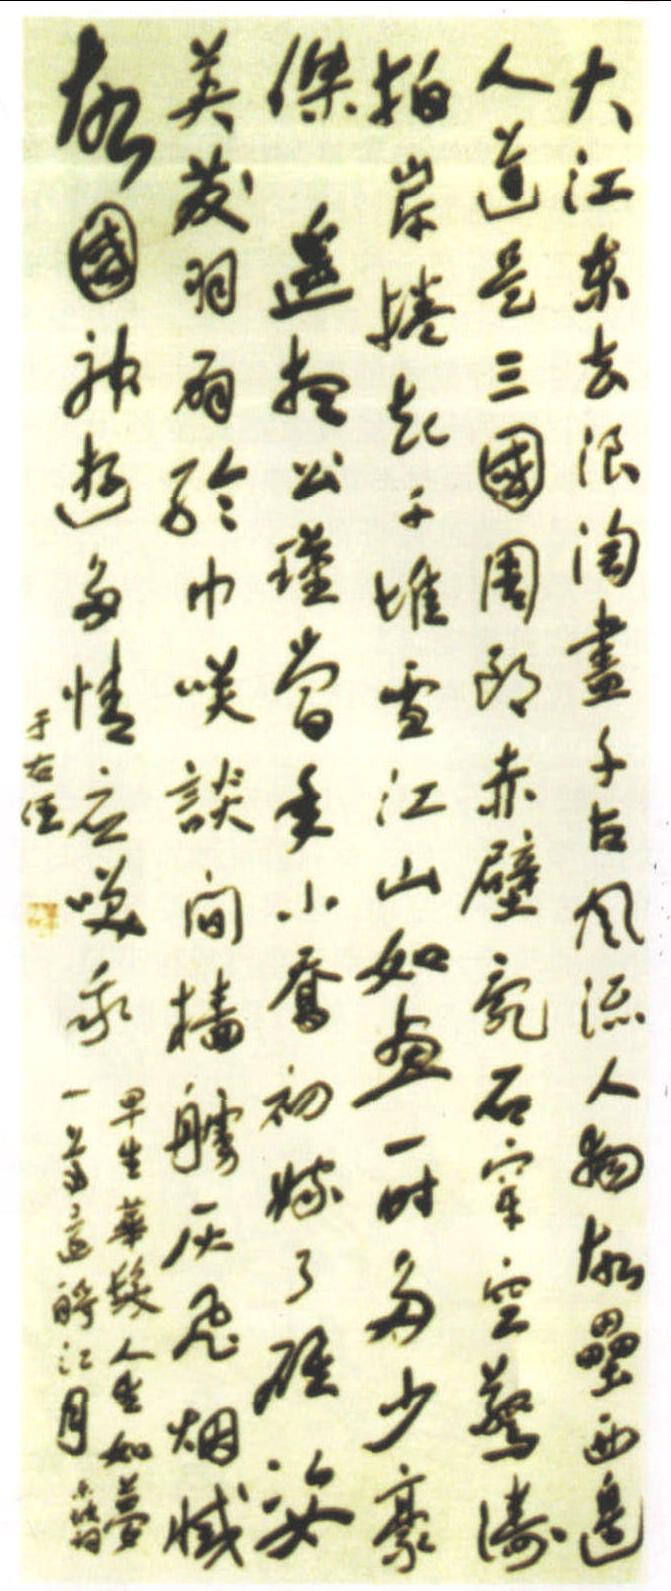 大江東去浪淘盡千古風流人物故壘西邊
人道是三國周郎赤壁亂石穿空驚濤
拍岸捲起千堆雪江山如畫一時多少豪
傑 遙想公瑾當年小喬初嫁了雄姿
英發羽扇綸巾笑談間檣艣灰飛烟滅
故國神遊多情應笑我
早生華髮人生如夢
一尊還酹江月 東坡詞
于右任